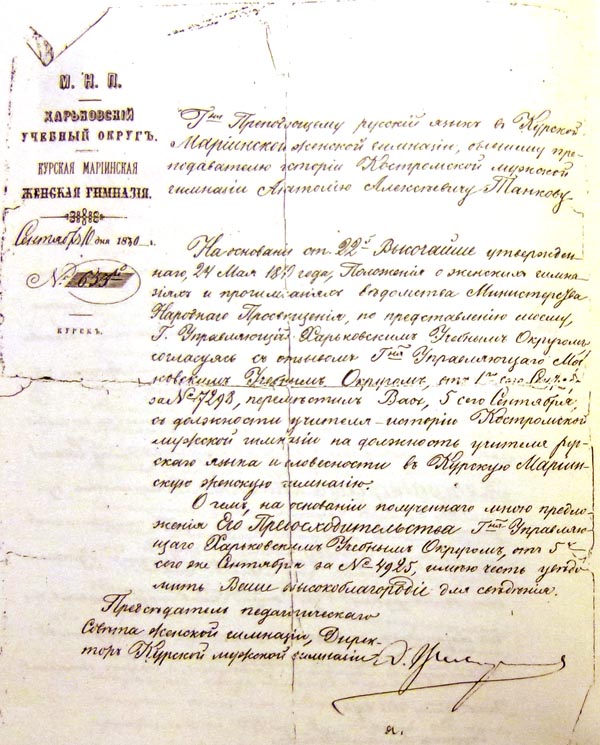 М. Н. П.
ХАРЬКОВСКІЙ
УЧЕБНЫЙ ОКРУГЪ.
КУРСКАЯ МАРІИНСКАЯ
ЖЕНСКАЯ ГИМНАЗІЯ.
Сентября 10 дня 18 г.
№ 635
КУРСКЪ.
Гну Преподающему русскій языкъ въ Курской
Маріинской женской гимназіи, бывшему пре-
подавателю исторіи Костромской мужской
гимназіи Анатолію Алексѣевичу Танкову
На основаніи ст. 22й Высочайше утвержден-
наго, 24 Мая 18 года, Положенія о женскихъ гимна-
зіяхъ и прогимназіяхъ вѣдомства Министерства
Народнаго Просвѣщенія, по представленію моему,
Г. Управляющій Харьковскимъ Учебнымъ Округомъ
согласуясь съ отзывомъ Гна Управляющаго Мос-
ковскимъ Учебнымъ Округомъ, отъ 1го сего
за № 7293, перемѣстилъ Васъ, 5 сего Сентября,
съ должности учителя исторіи Костромской
мужской гимназіи на должность учителя рус-
скаго языка и словесности въ Курскую Маріин-
скую женскую гимназію.
О чемъ, на основаніи полученнаго мною предло-
женія Его Превосходительства Гна Управляю-
щаго Харьковскимъ Учебнымъ Округомъ, отъ 5
сего же Сентября за № 4925, имѣю честь увѣдо-
мить Ваше высокоблагородіе для свѣдѣнія.
Предсѣдатель педагогическаго
Совѣта женской гимназіи, Дирек-
торъ Курской мужской гимназіи Д.